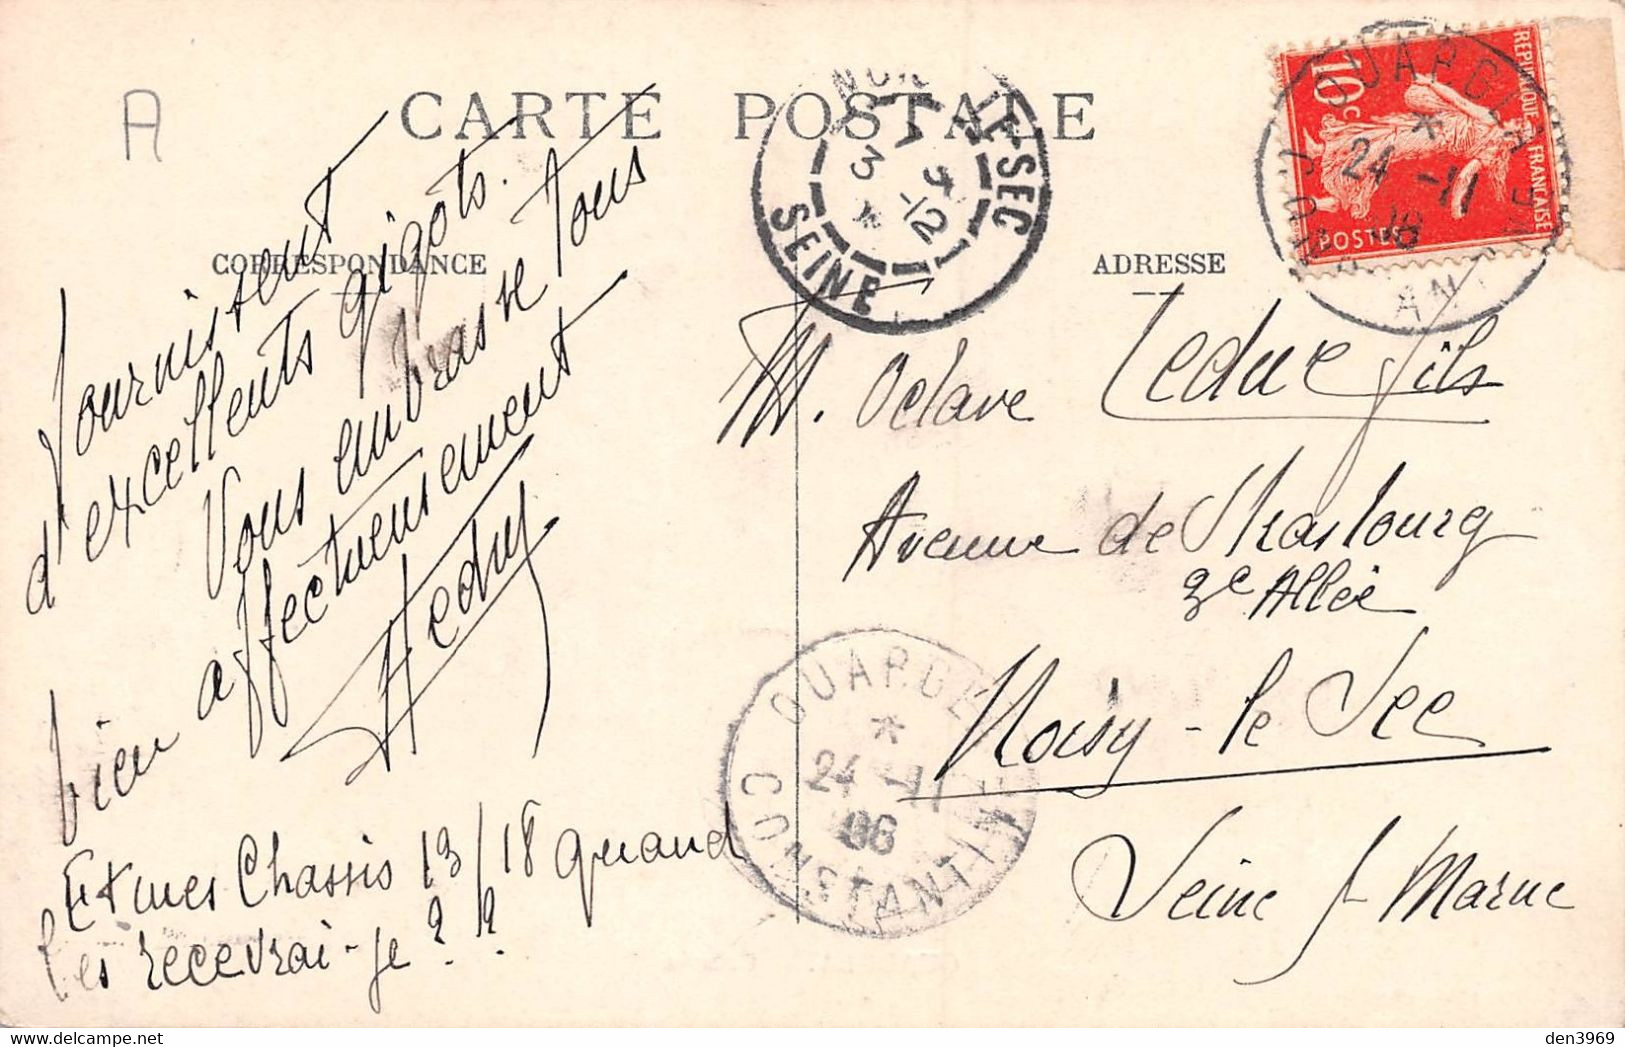 A
CARTE POSTALE
CORRESPONDANCE
ADRESSE
fournissent
d'excellents gigots.
Vous embrasse tous
bien affectueusement
Et mes Chassis 13/18 quand
les recevrai-je ? ?
M. Octave Leduc fils
Avenue de Strasbourg
3e Allée
Noisy-le Sec
Seine s/ Marne
NOISY-LE-SEC
SEINE
3 *
-12
REPUBLIQUE FRANCAISE
10c
POSTES
OUARGLA
*
24 -11
06
CONSTANTINE
OUARGLA
*
24 -11
06
CONSTANTINE
den3969